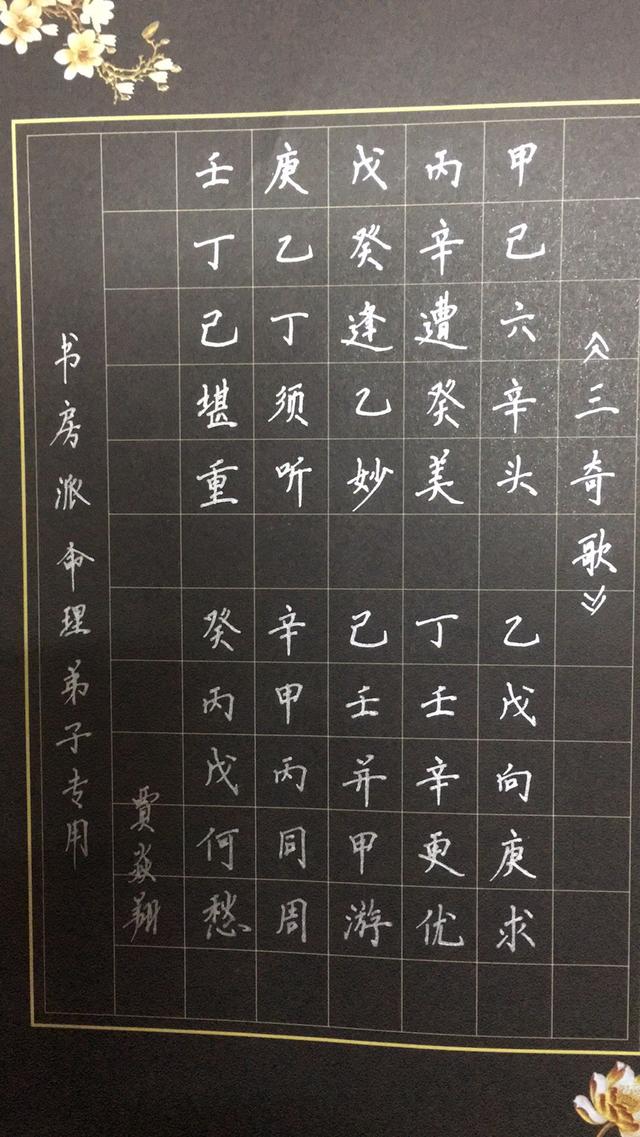 《三奇歌》
甲己六辛头 乙戊向庚求
丙辛遭癸美 丁壬辛更优
戊癸逢乙妙 己壬并甲游
庚乙丁须听 辛甲丙同周
壬丁己堪重 癸丙戊何愁
贾焱翔
书房派命理弟子专用